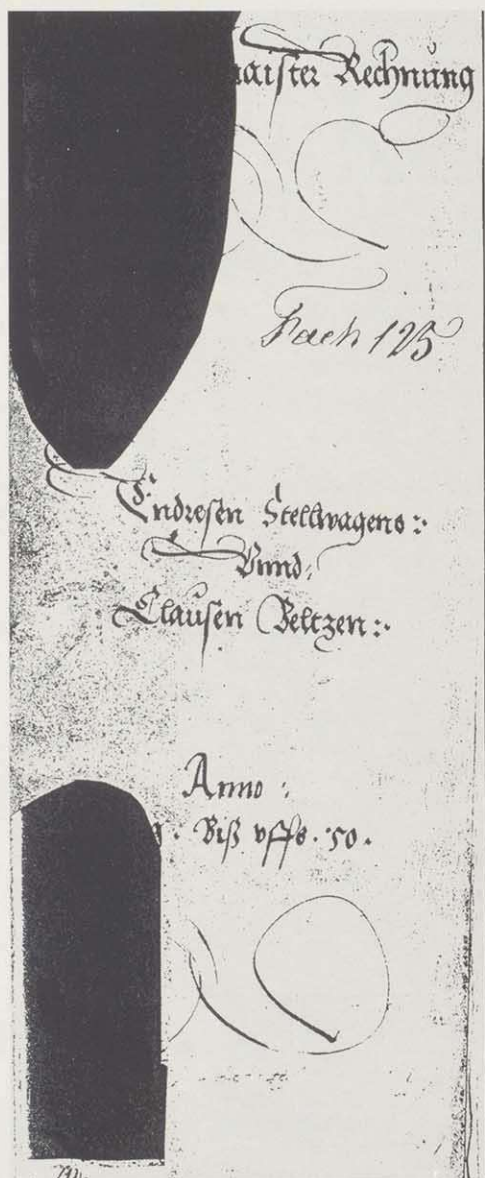 Rechnung
Fach 125
Endresen Stellwagens :
Vnnd
Clausen Veltzen :
Anno :
Biß vffs . 50 .